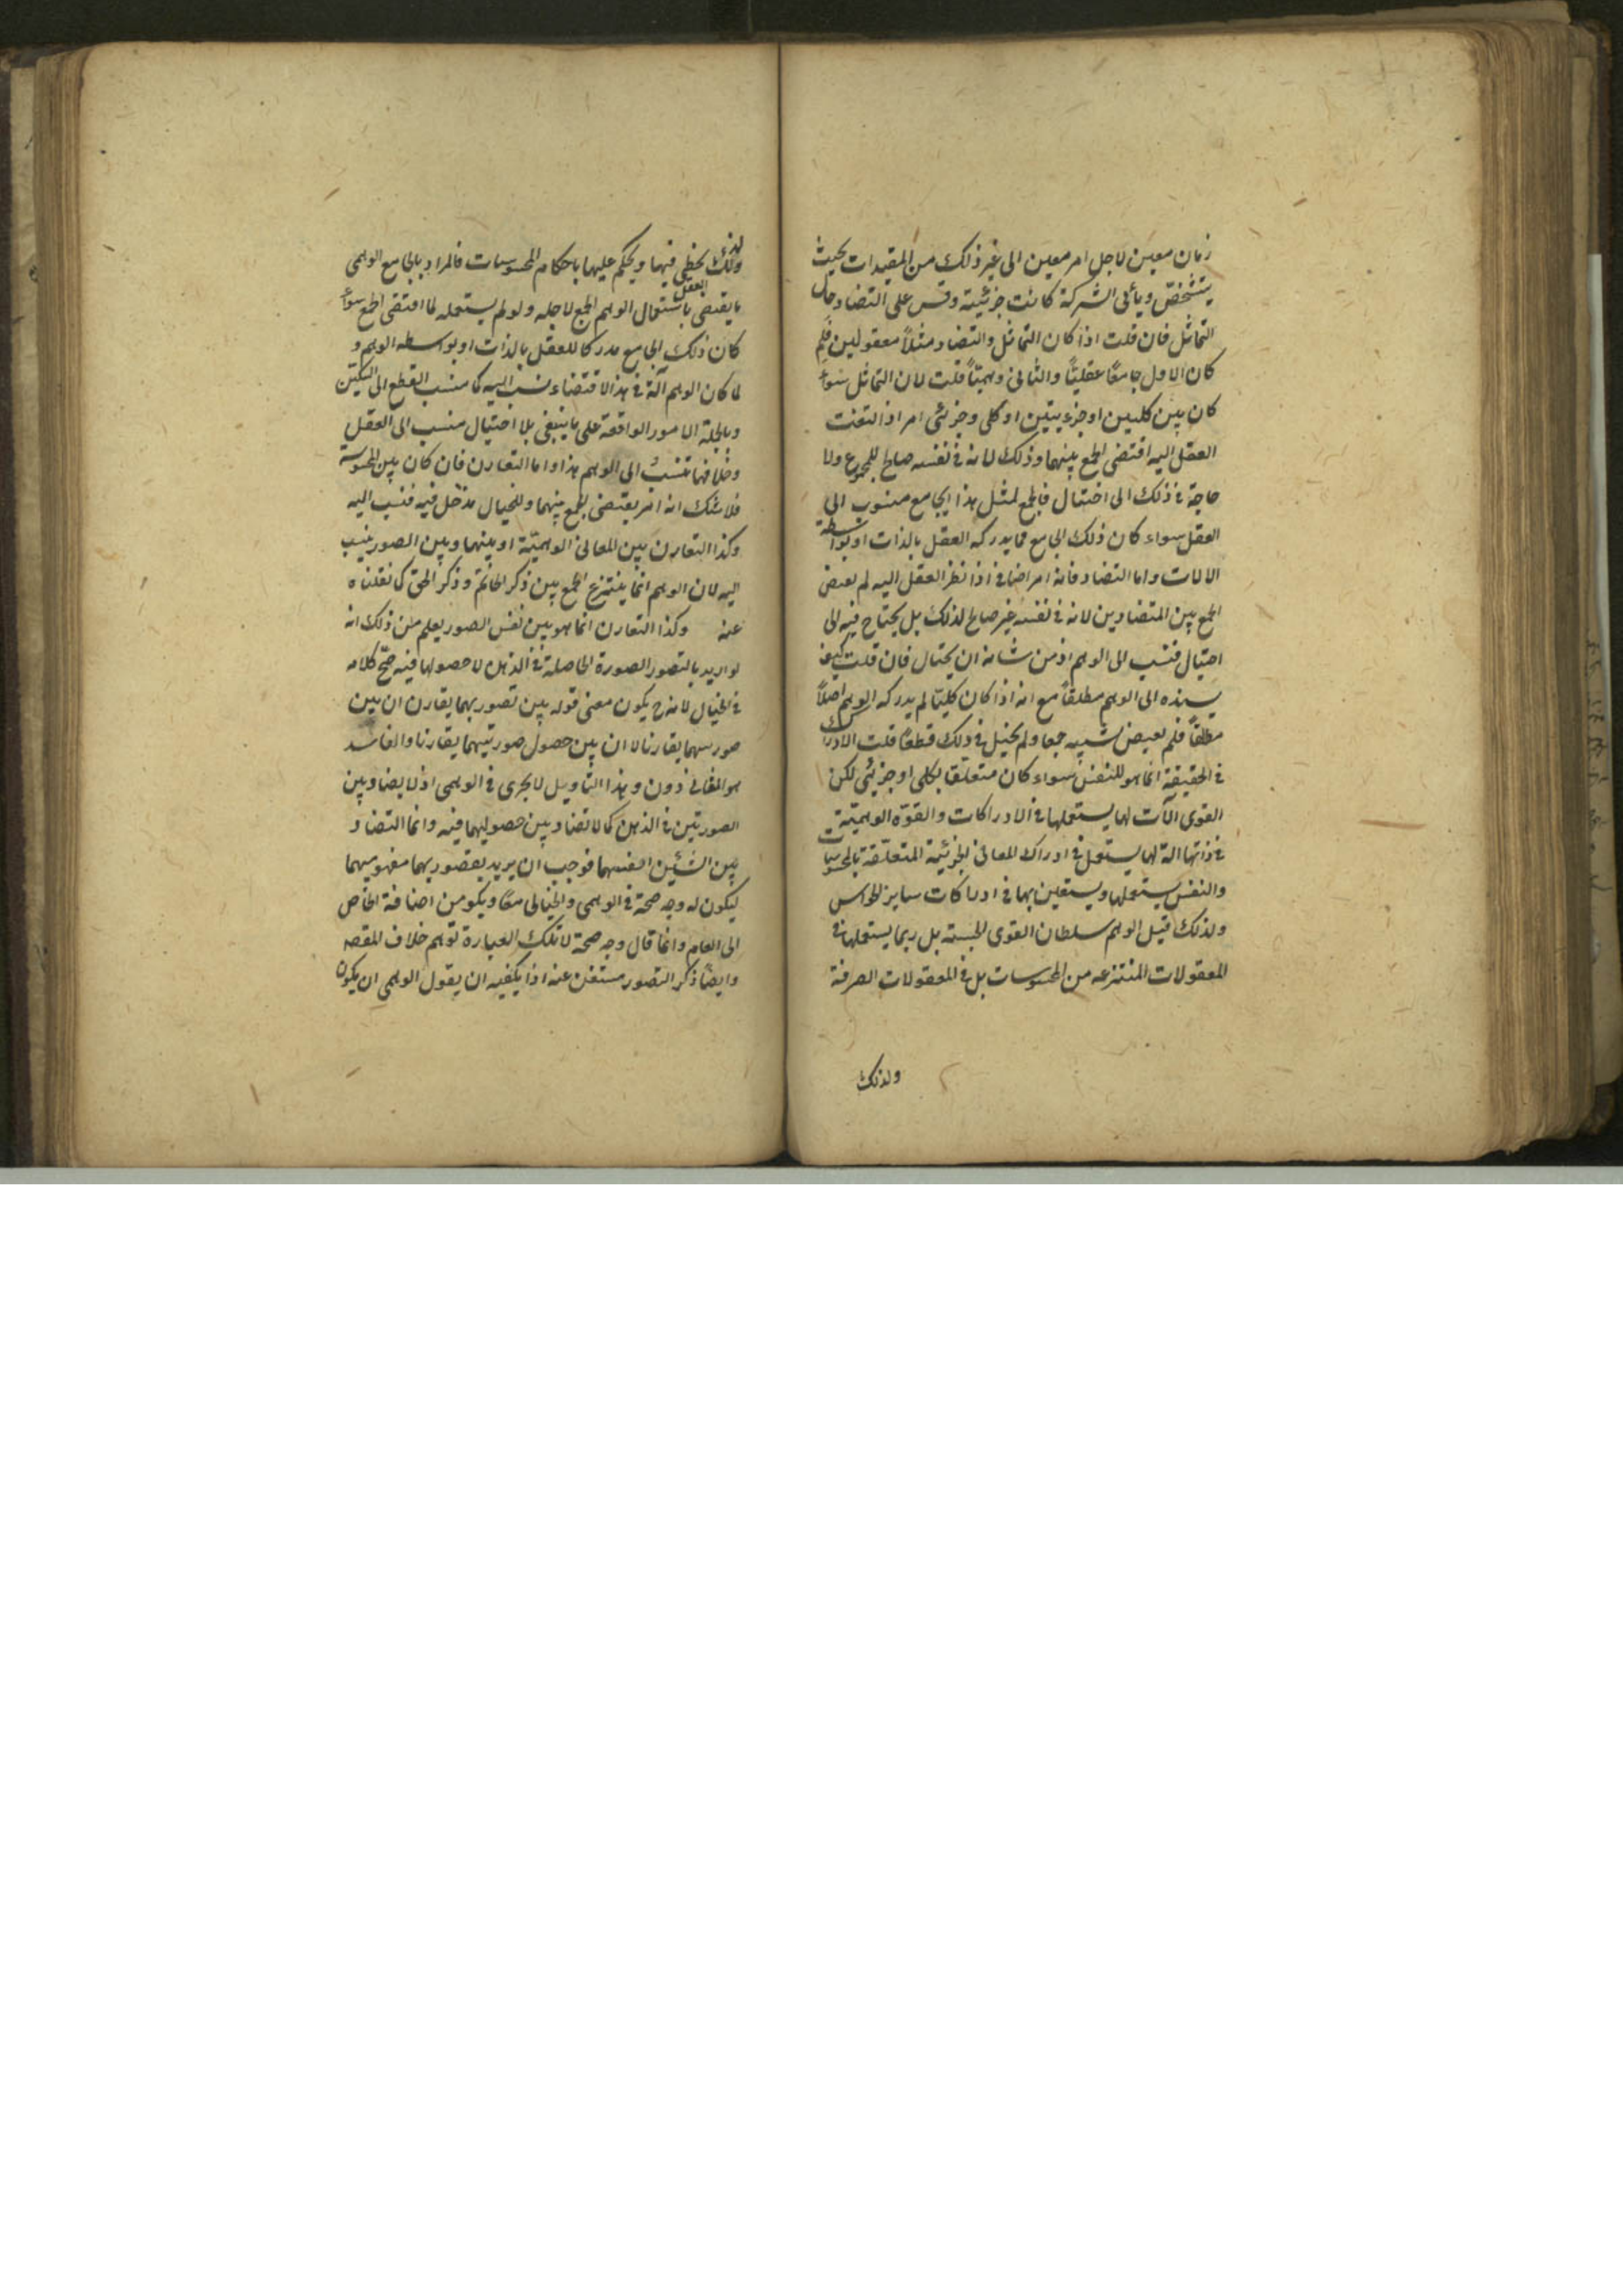 زمان معين لاجل امر معين الى غير ذلك من المقيدات بحيث
يتشخص ويأبى الشركة كانت جزئية وقس على التضاد حال
التماثل فان قلت اذا كان التماثل والتضاد مثلاً معقولين فلم
كان الاول جامعًا عقليًّا والثانى وهميًّا قلت لان التماثل سواء
كان بين كليين او جزءيتين او كلى وجزئى امر اذا التفت
العقل اليه اقتضى الجمع بينهما وذلك لانه فى نفسه صالح للجمع ولا
حاجة فى ذلك الى احتيال فالجمع لمثل هذا الجامع منسوب الى
العقل سواء كان ذلك الجامع مما يدركه العقل بالذات او بواسطة
الالات واما التضاد فانه امر اضافى اذا نظر العقل اليه لم
الجمع بين المتضادين لانه فى نفسه غير صالح لذلك بل يحتاج فيه الى
احتيال فنسب الى الوهم اذ من شانه ان يحتال فان قلت كيف
يسنده الى الوهم مطلقاً مع انه اذا كان كليّا لم يدركه الوهم اصلاً
مطلقاً فلم جمعا ولم فى ذلك قطعًا قلت الادراك
فى الحقيقة انما هو للنفس سواء كان متعلّقا بكلى او جزئى لكن
القوى الآت لها يستعملها فى الادراكات والقوّة الوهميّة
فى ذاتها الة لها يستعمل فى ادراك المعانى الجزئية المتعلّقة بالمحسوسات
والنفس يستعملها ويستعين بها فى ادراكات ساير الحواس
ولذلك قيل الوهم سلطان القوى الحسية بل ربما يستعملها فى
المعقولات المنتزعه من المحسوسات بل فى المعقولات الصرفة
ولذلك
ولذلك يخطى فيها ويحكم عليها باحكام المحسوسات فالمراد بالجامع الوهمى
ما يقتضى العقل باستعمال الوهم الجمع لاجله ولو لم يستعمله لما اقتضى الجمع سواء
كان ذلك الجامع مدركا للعقل بالذات او بواسطه الوهم و
لما كان الوهم آلة فى هذا الاقتضاء نسب اليه كما ينسب القطع الى السكين
وبالجملة الامور الواقعة على ما ينبغى بلا احتيال ينسب الى العقل
وخلافها تنسب الى الوهم هذا واما التقارن فان كان بين المحسوسة
فلا شك انه امر يقتضى الجمع بينهما وللخيال مدخل فيه فنسب اليه
وكذا التقارن بين المعانى الوهميّة او بينهما وبين الصور ينسب
اليه لان الوهم انما ينتزع الجمع بين ذكر الخاتم وذكر كما نقلناه
عنه وكذا التقارن انما هو بين نفس الصور يعلم من ذلك انه
لو اريد بالتصور الصورة الحاصلة فى الذهن لا حصولها فيه صحّ كلامه
فى الخيال لانه ح يكون معنى قوله بين تصوريهما تقارن ان بين
صورتيهما تقارنا لا ان بين حصول صورتيهما تقارنا والفاسد
هو الثانى دون وهذا التاويل لا يجرى فى الوهمى اذ لا تضاد بين
الصورتين فى الذهن كما لا تضاد بين حصوليهما فيه وانما التضاد
بين الشيئين انفسهما فوجب ان يريد بتصوريهما مفهوميهما
ليكون له وجه صحة فى الوهمى والخيالى معًا ويكو من اضافة الخاص
الى العام وانما قال وجه صحة لا تلك العبارة توهم خلاف المقصه
وايضًا ذكر التصور مستغن عنه اذا يكفيه ان يقول الوهمى ان يكون